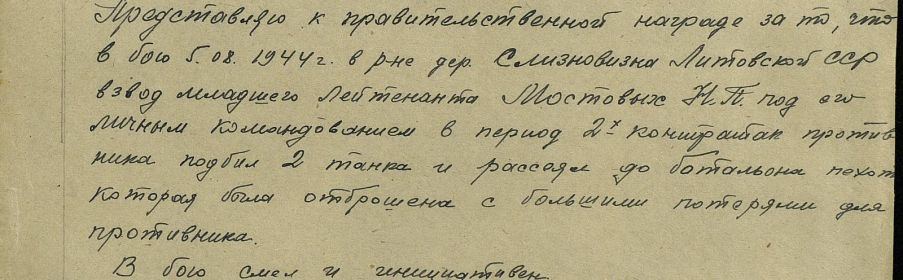 Представляю к правительственной награде за то, что
в бою 5.08.1944г. в р-не дер. Слизновизна Литовской ССР
взвод младшего Лейтенанта Мостовых Н.П. под его
личным командованием в период 2х контратак против
ника подбил 2 танка и рассеял до батальона пехот
которая была отброшена с большими потерями для
противника.
В бою смел и инициативен